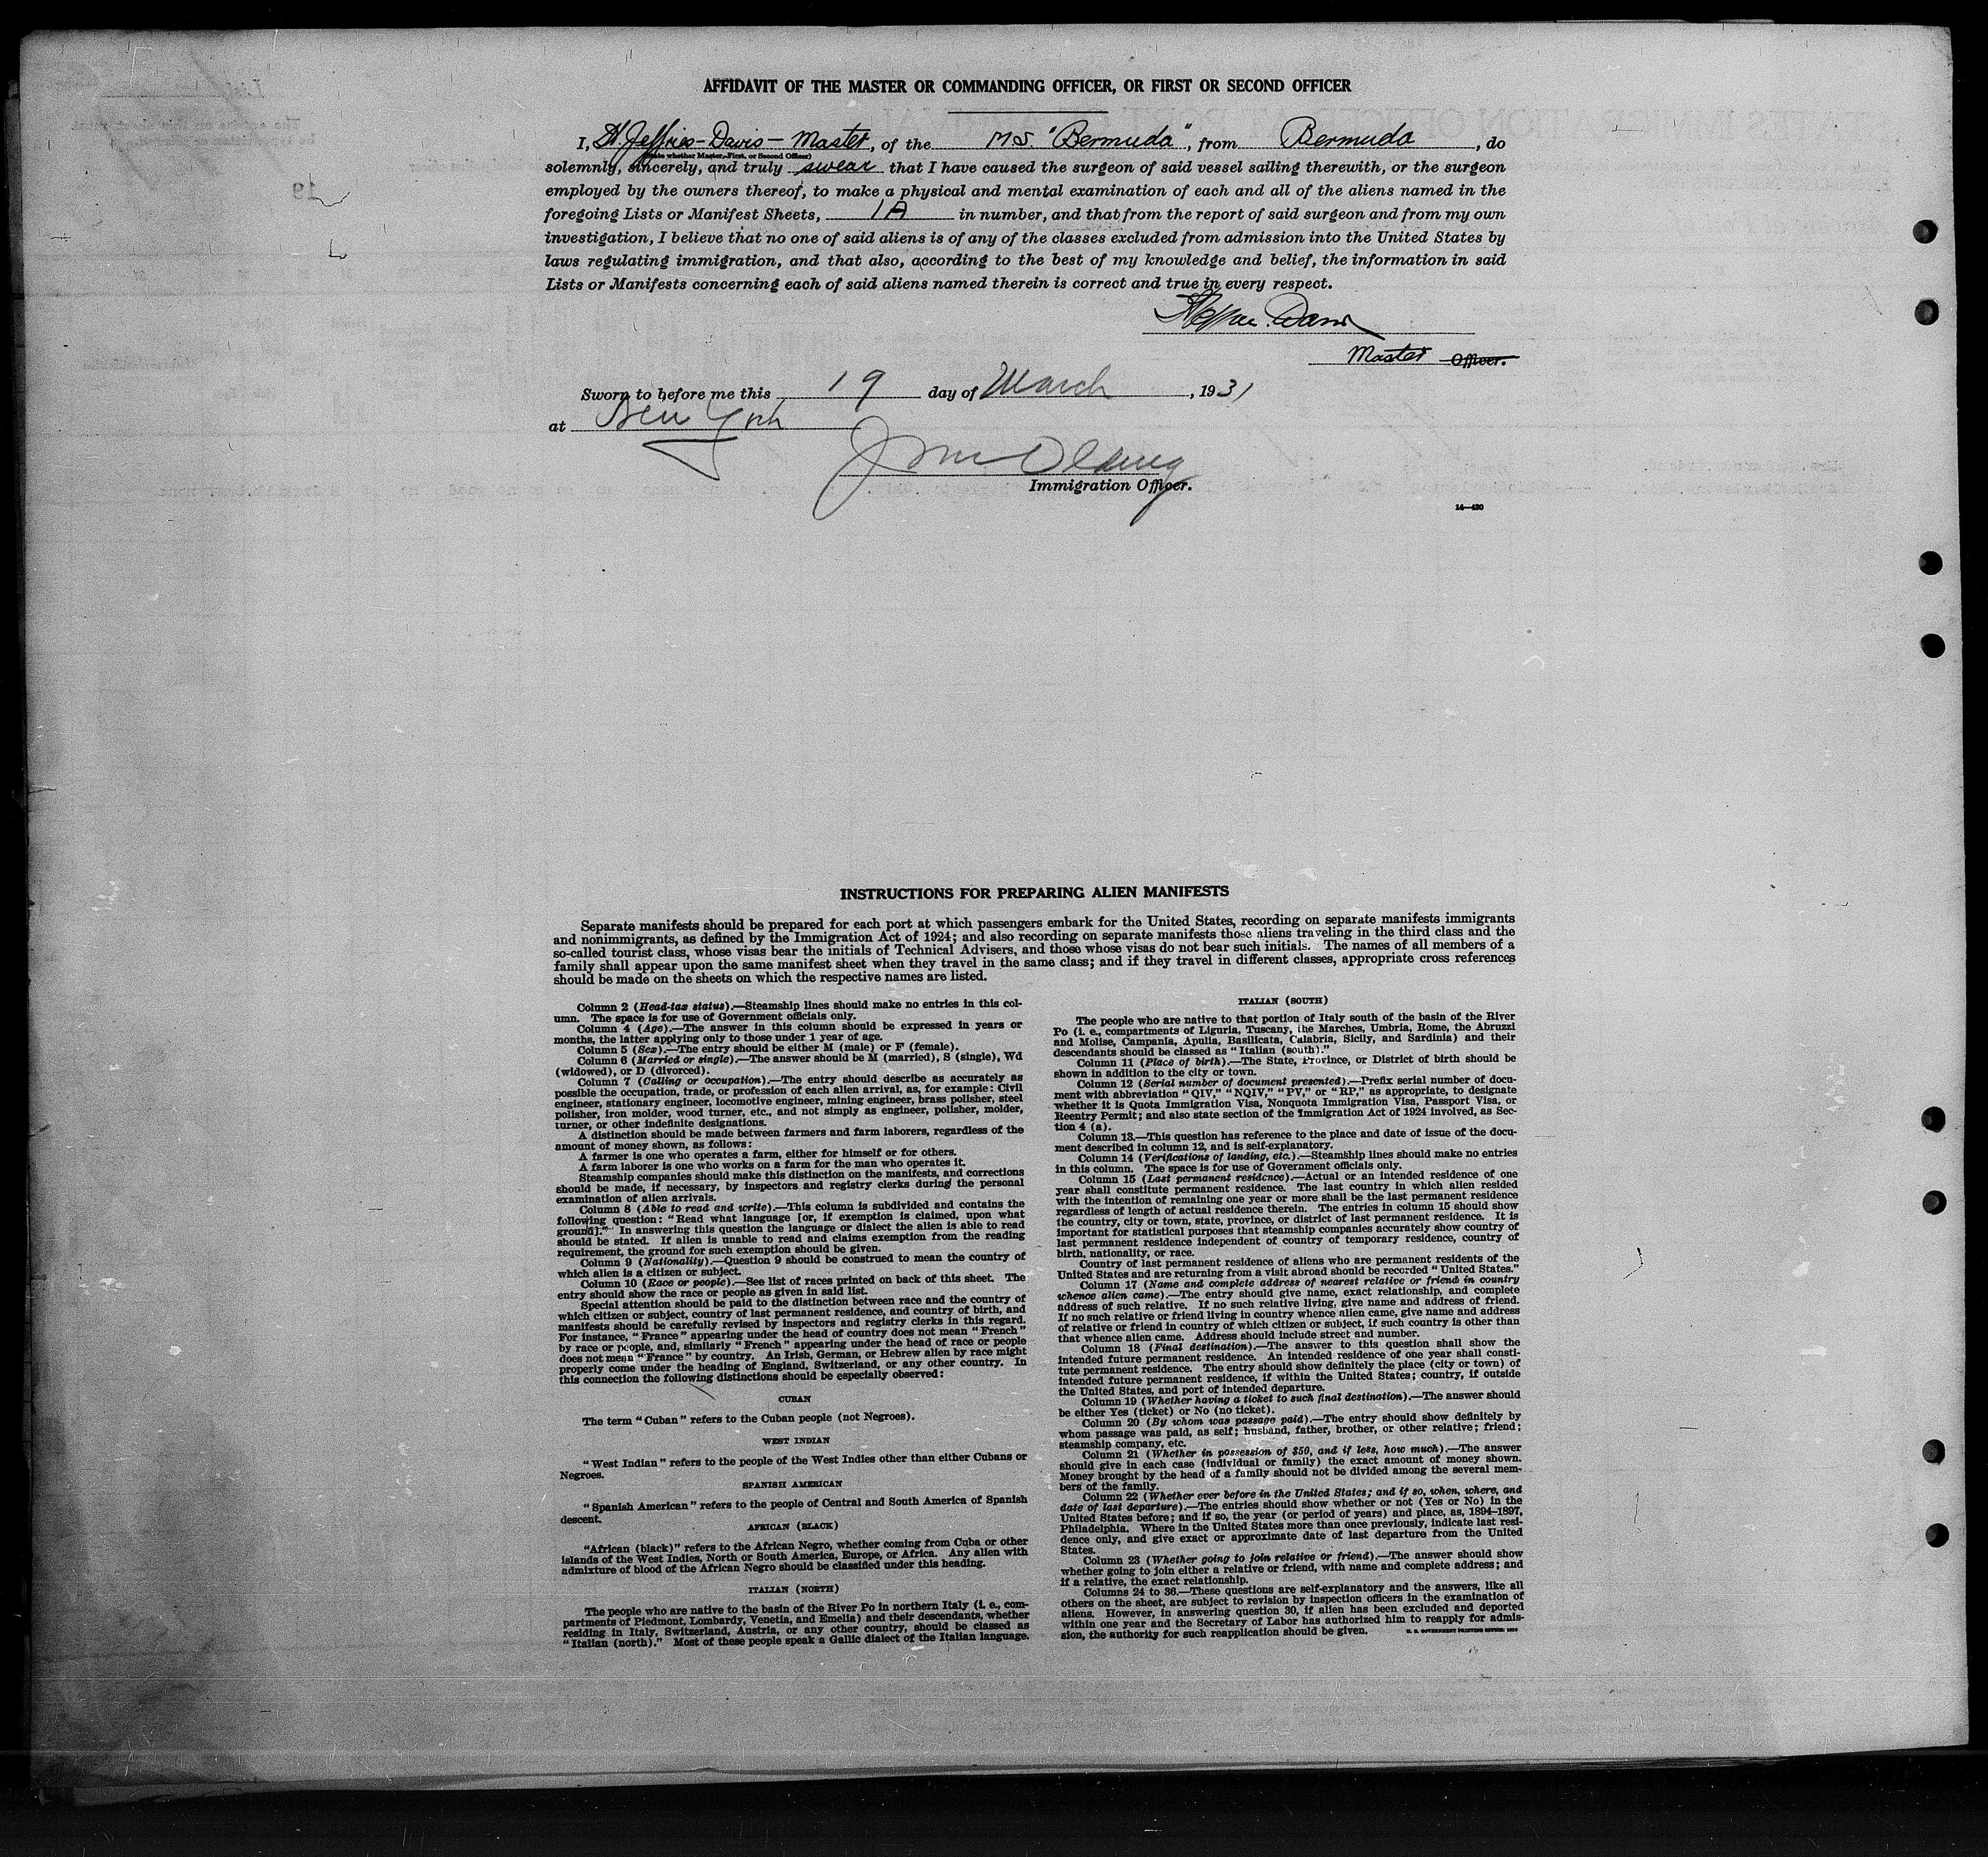 AFFIDAVIT OF THE MASTER OR COMMANDING OFFICER, OR FIRST OR SECOND OFFICER
I, H. Jeffries-Davis - Master, of the MS. "Bermuda", from Bermuda, do
(State whether Master, First, or Second Officer)
solemnly, sincerely, and truly swear that I have caused the surgeon of said vessel sailing therewith, or the surgeon
employed by the owners thereof, to make a physical and mental examination of each and all of the aliens named in the
foregoing Lists or Manifest Sheets, 1A in number, and that from the report of said surgeon and from my own
investigation, I believe that no one of said aliens is of any of the classes excluded from admission into the United States by
laws regulating immigration, and that also, according to the best of my knowledge and belief, the information in said
Lists or Manifests concerning each of said aliens named therein is correct and true in every respect.
Master Officer.
Sworn to before me this 19 day of March, 1931
at New York
Immigration Officer.
14—430
INSTRUCTIONS FOR PREPARING ALIEN MANIFESTS
Separate manifests should be prepared for each port at which passengers embark for the United States, recording on separate manifests immigrants
and nonimmigrants, as defined by the Immigration Act of 1924; and also recording on separate manifests those aliens traveling in the third class and the
so-called tourist class, whose visas bear the initials of Technical Advisers, and those whose visas do not bear such initials. The names of all members of a
family shall appear upon the same manifest sheet when they travel in the same class; and if they travel in different classes, appropriate cross references
should be made on the sheets on which the respective names are listed.
Column 2 (Head-tax status).—Steamship lines should make no entries in this col-
umn. The space is for use of Government officials only.
Column 4 (Age).—The answer in this column should be expressed in years or
months, the latter applying only to those under 1 year of age.
Column 5 (Sex).—The entry should be either M (male) or F (female).
Column 6 (Married or single).—The answer should be M (married), S (single), Wd
(widowed), or D (divorced).
Column 7 (Calling or occupation).—The entry should describe as accurately as
possible the occupation, trade, or profession of each alien arrival, as, for example: Civil
engineer, stationary engineer, locomotive engineer, mining engineer, brass polisher, steel
polisher, iron molder, wood turner, etc., and not simply as engineer, polisher, molder,
turner, or other indefinite designations.
A distinction should be made between farmers and farm laborers, regardless of the
amount of money shown, as follows:
A farmer is one who operates a farm, either for himself or for others.
A farm laborer is one who works on a farm for the man who operates it.
Steamship companies should make this distinction on the manifests, and corrections
should be made, if necessary, by inspectors and registry clerks during the personal
examination of alien arrivals.
Column 8 (Able to read and write).—This column is subdivided and contains the
following question: "Read what language [or, if exemption is claimed, upon what
ground]." In answering this question the language or dialect the alien is able to read
should be stated. If alien is unable to read and claims exemption from the reading
requirement, the ground for such exemption should be given.
Column 9 (Nationality).—Question 9 should be construed to mean the country of
which alien is a citizen or subject.
Column 10 (Race or people).—See list of races printed on back of this sheet. The
entry should show the race or people as given in said list.
Special attention should be paid to the distinction between race and the country of
which citizen or subject, country of last permanent residence, and country of birth, and
manifests should be carefully revised by inspectors and registry clerks in this regard.
For instance, "France" appearing under the head of country does not mean "French"
by race or people, and, similarly "French" appearing under the head of race or people
does not mean "France" by country. An Irish, German, or Hebrew alien by race might
properly come under the heading of England, Switzerland, or any other country. In
this connection the following distinctions should be especially observed:
CUBAN
The term "Cuban" refers to the Cuban people (not Negroes).
WEST INDIAN
"West Indian" refers to the people of the West Indies other than either Cubans or
Negroes.
SPANISH AMERICAN
"Spanish American" refers to the people of Central and South America of Spanish
descent.
AFRICAN (BLACK)
"African (black)" refers to the African Negro, whether coming from Cuba or other
islands of the West Indies, North or South America, Europe, or Africa. Any alien with
admixture of blood of the African Negro should be classified under this heading.
ITALIAN (NORTH)
The people who are native to the basin of the River Po in northern Italy (i. e., com-
partments of Piedmont, Lombardy, Venetia, and Emelia) and their descendants, whether
residing in Italy, Switzerland, Austria, or any other country, should be classed as
"Italian (north)." Most of these people speak a Gallic dialect of the Italian language.
ITALIAN (SOUTH)
The people who are native to that portion of Italy south of the basin of the River
Po (i. e., compartments of Liguria, Tuscany, the Marches, Umbria, Rome, the Abruzzi
and Molise, Campania, Apulia, Basilicata, Calabria, Sicily, and Sardinia) and their
descendants should be classed as "Italian (south)."
Column 11 (Place of birth).—The State, Province, or District of birth should be
shown in addition to the city or town.
Column 12 (Serial number of document presented).—Prefix serial number of docu-
ment with abbreviation "QIV," "NQIV," "PV," or "RP," as appropriate, to designate
whether it is Quota Immigration Visa, Nonquota Immigration Visa, Passport Visa, or
Reentry Permit; and also state section of the Immigration Act of 1924 involved, as Sec-
tion 4 (a).
Column 13.—This question has reference to the place and date of issue of the docu-
ment described in column 12, and is self-explanatory.
Column 14 (Verifications of landing, etc.).—Steamship lines should make no entries
in this column. The space is for use of Government officials only.
Column 15 (Last permanent residence).—Actual or an intended residence of one
year shall constitute permanent residence. The last country in which alien resided
with the intention of remaining one year or more shall be the last permanent residence
regardless of length of actual residence therein. The entries in column 15 should show
the country, city or town, state, province, or district of last permanent residence. It is
important for statistical purposes that steamship companies accurately show country of
last permanent residence independent of country of temporary residence, country of
birth, nationality, or race.
Country of last permanent residence of aliens who are permanent residents of the
United States and are returning from a visit abroad should be recorded "United States."
Column 17 (Name and complete address of nearest relative or friend in country
whence alien came).—The entry should give name, exact relationship, and complete
address of such relative. If no such relative living, give name and address of friend.
If no such relative or friend living in country whence alien came, give name and address
of relative or friend in country of which citizen or subject, if such country is other than
that whence alien came. Address should include street and number.
Column 18 (Final destination).—The answer to this question shall show the
intended future permanent residence. An intended residence of one year shall consti-
tute permanent residence. The entry should show definitely the place (city or town) of
intended future permanent residence, if within the United States; country, if outside
the United States, and port of intended departure.
Column 19 (Whether having a ticket to such final destination).—The answer should
be either Yes (ticket) or No (no ticket).
Column 20 (By whom was passage paid).—The entry should show definitely by
whom passage was paid, as self; husband, father, brother, or other relative; friend;
steamship company, etc.
Column 21 (Whether in possession of $50, and if less, how much).—The answer
should give in each case (individual or family) the exact amount of money shown.
Money brought by the head of a family should not be divided among the several mem-
bers of the family.
Column 22 (Whether ever before in the United States; and if so, when, where, and
date of last departure).—The entries should show whether or not (Yes or No) in the
United States before; and if so, the year (or period of years) and place, as, 1894–1897,
Philadelphia. Where in the United States more than once previously, indicate last resi-
dence only, and give exact or approximate date of last departure from the United
States.
Column 23 (Whether going to join relative or friend).—The answer should show
whether going to join either a relative or friend, with name and complete address; and
if a relative, the exact relationship.
Columns 24 to 36.—These questions are self-explanatory and the answers, like all
others on the sheet, are subject to revision by inspection officers in the examination of
aliens. However, in answering question 30, if alien has been excluded and deported
within one year and the Secretary of Labor has authorized him to reapply for admis-
sion, the authority for such reapplication should be given.